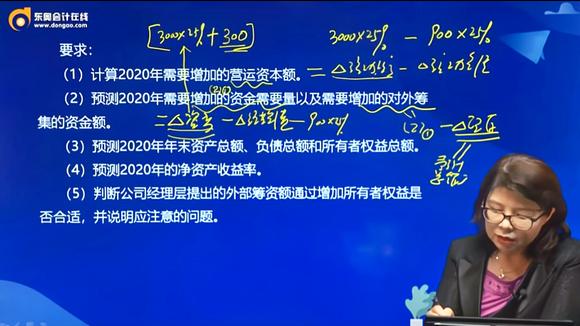 东奥会计在线
www.dongao.com
[3000×25%+300]
3000×25% - 900×25%
要求：
（1）计算2020年需要增加的营运资本额。
（2）预测2020年需要增加的资金需要量以及需要增加的对外筹
集的资金额。
900×25%
（3）预测2020年年末资产总额、负债总额和所有者权益总额。
（4）预测2020年的净资产收益率。
（5）判断公司经理层提出的外部筹资额通过增加所有者权益是
否合适，并说明应注意的问题。